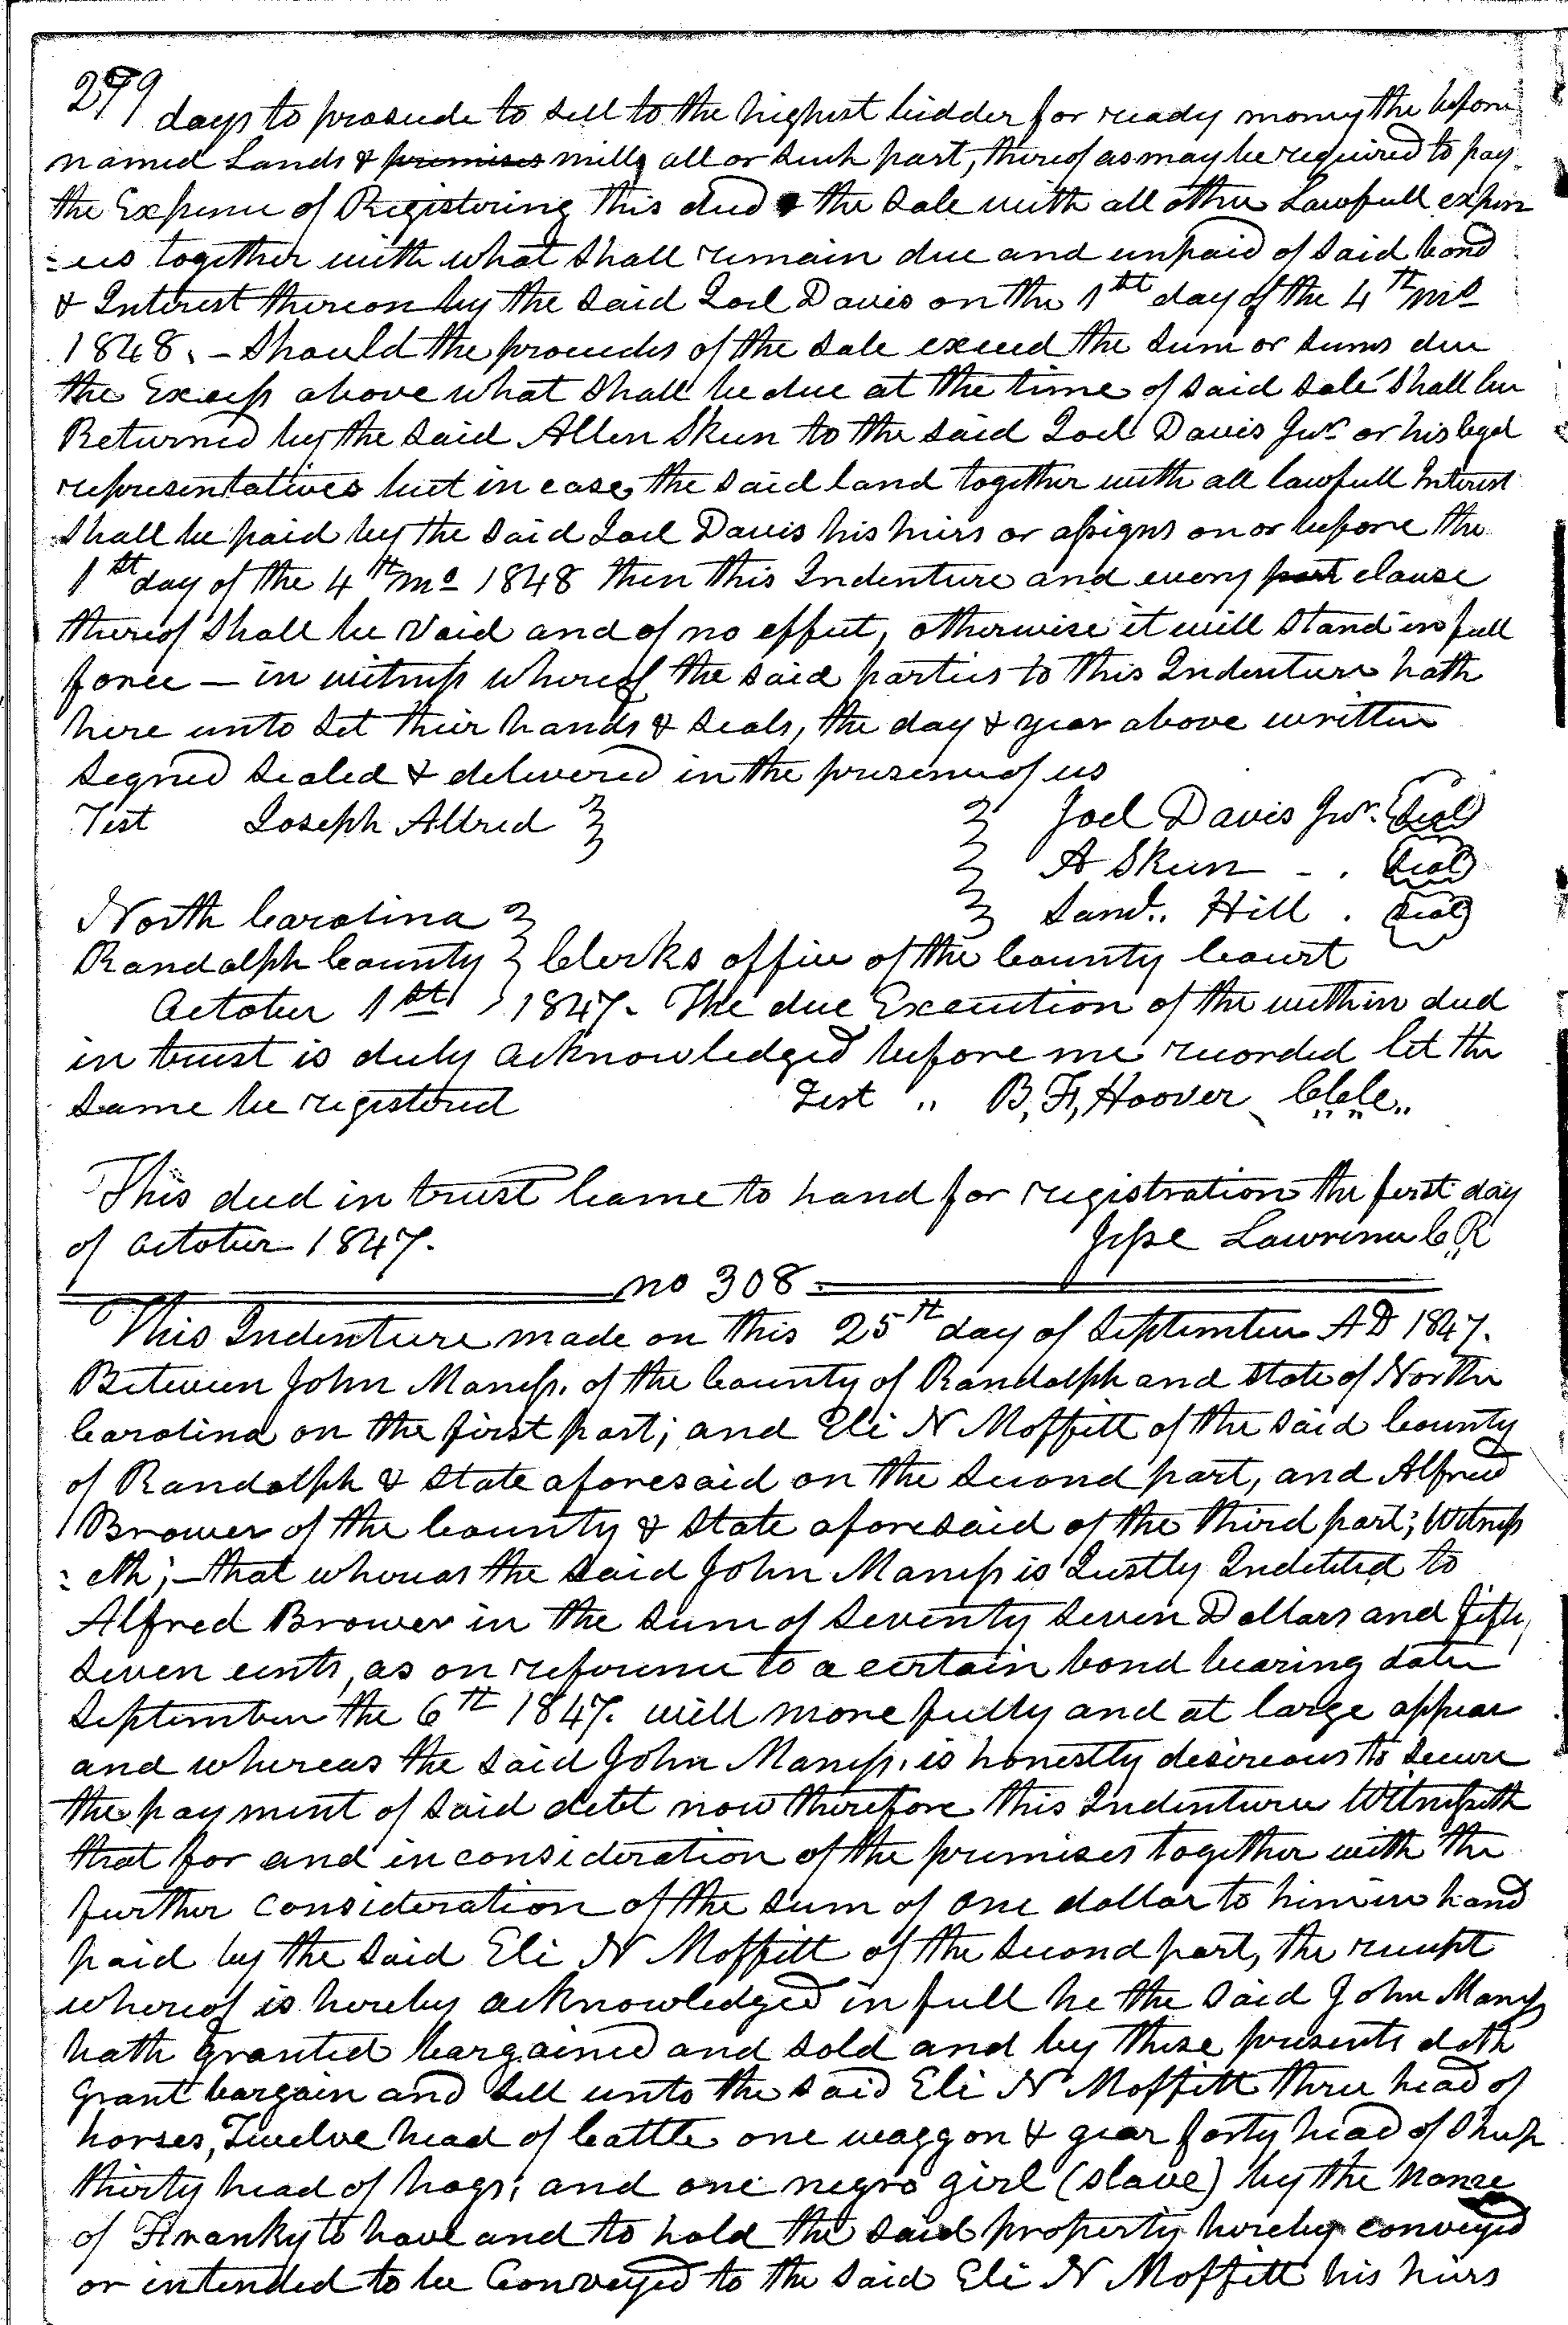 279
days to prosude to sell to the highest bidder for ready money the before
named Lands & premises mills all or such part, thereof as may be required to pay
the Expense of Registering this deed & the Sale with all other Lawfull expen
=ces together with what Shall remain due and unpaid of Said bond
& Interest thereon by the Said Joel Davis on the 1st day of the 4th mo
1848. – Should the proceeds of the Sale exceed the Sum or Sums due
the Excess above what Shall be due at the time of Said Sale Shall be
Returned by the Said Allen Skeen to the Said Joel Davis Junr or his legal
representatives but in case the Said land together with all lawfull Interest
Shall be paid by the Said Joel Davis his heirs or assigns on or before the
1st day of the 4th mo 1848 then this Indenture and every part clause
thereof Shall be Void and of no effect, otherwise it will Stand in full
force – in witness whereof the Said parties to this Indenture hath
here unto Set their hands & Seals, the day & year above written
Segned Sealed & delivered in the presence of us
Test Joseph Allred Joel Davis Junr. Seal
A Skeen - . Seal
North Carolina Saml.. Hill . Seal
Randolph County Clerks office of the County Court
October 1st 1847. The due Execution of the within deed
in trust is duly acknowledged before me recorded let the
Same be registered Test " B, F, Hoover C.C.C..
This deed in trust Came to hand for registration the first day
of October 1847. Jesse Lawrence C.R
no 308
This Indenture made on this 25th day of September AD 1847.
Between John Maness. of the County of Randolph and State of North
Carolina on the first part; and Eli N Moffitt of the Said County
of Randolph & State aforesaid on the Second part, and Alfred
Brower of the County & State aforesaid of the third part; Witness
=eth; – that whereas the Said John Maness is Justly Indebted to
Alfred Brower in the Sum of Seventy Seven Dollars and fifty
Seven cents, as on reference to a certain bond bearing date
September the 6th 1847. will more fully and at large appear
and whereas the Said John Maness. is honestly desireous to Secure
the payment of Said debt now therefore this Indenture Witnesseth
that for and in consideration of the premises together with the
further consideration of the Sum of one dollar to him in hand
paid by the Said Eli N Moffitt of the Second part, the receipt
whereof is hereby acknowledged in full he the Said John Maness
hath granted bargained and Sold and by these presents doth
grant bargain and Sell unto the Said Eli N Moffitt three head of
horses, Twelve head of Cattle one waggon & gear forty head of Sheep
thirty head of hogs; and one negro girl (slave) by the Name
of Franky to have and to hold the Said property hereby conveyed
or intended to be Conveyed to the Said Eli N Moffitt his heirs